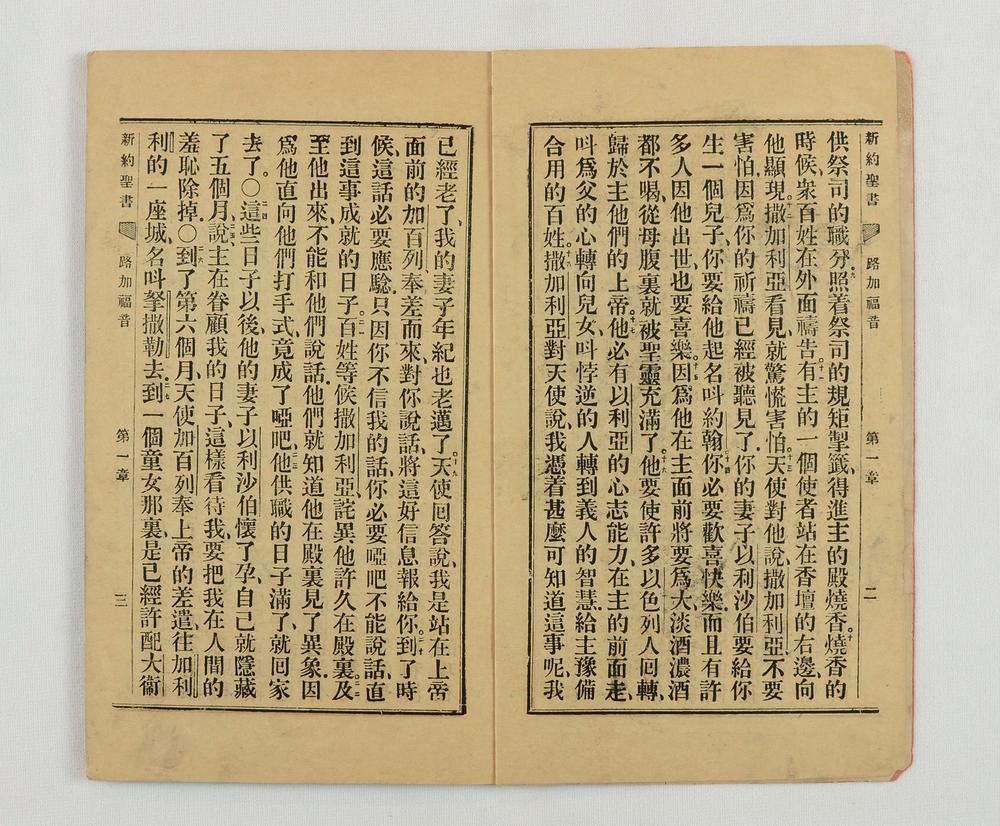 新約聖書 路加福音 第一章 二
供祭司的職分九照着祭司的規矩掣籤、得進主的殿燒香。十燒香的
時候、衆百姓在外面禱告。十一有主的一個使者站在香壇的右邊、向
他顯現。十二撒加利亞看見、就驚慌害怕。十三天使對他說、撒加利亞、不要
害怕、因爲你的祈禱已經被聽見了、你的妻子以利沙伯要給你
生一個兒子、你要給他起名呌約翰。十四你必要歡喜快樂、而且有許
多人因他出世、也要喜樂。十五因爲他在主面前將要爲大、淡酒濃酒
都不喝、從母腹裏就被聖靈充滿了。十六他要使許多以色列人囘轉、
歸於主他們的上帝。十七他必有以利亞的心志能力、在主的前面走、
呌爲父的心轉向兒女、呌悖逆的人轉到義人的智慧、給主豫備
合用的百姓。十八撒加利亞對天使說、我憑着甚麼可知道這事呢、我
已經老了、我的妻子年紀也老邁了。十九天使回答說、我是站在上帝
面前的加百列、奉差而來、對你說話、將這好信息報給你。二十到了時
候、這話必要應驗、只因你不信我的話、你必要啞吧不能說話、直
到這事成就的日子。二一百姓等候撒加利亞、詫異他許久在殿裏。二二及
至他出來、不能和他們說話、他們就知道他在殿裏見了異象、因
爲他直向他們打手式、竟成了啞吧。二三他供職的日子滿了、就回家
去了。〇二四這些日子以後、他的妻子以利沙伯懷了孕、自己就隱藏
了五個月、二五說、主在眷顧我的日子、這樣看待我、要把我在人間的
羞恥除掉。〇二六到了第六個月、天使加百列奉上帝的差遣、往加利
利的一座城、名呌拏撒勒去、二七到一個童女那裏、是已經許配大衞
新約聖書 路加福音 第一章 三